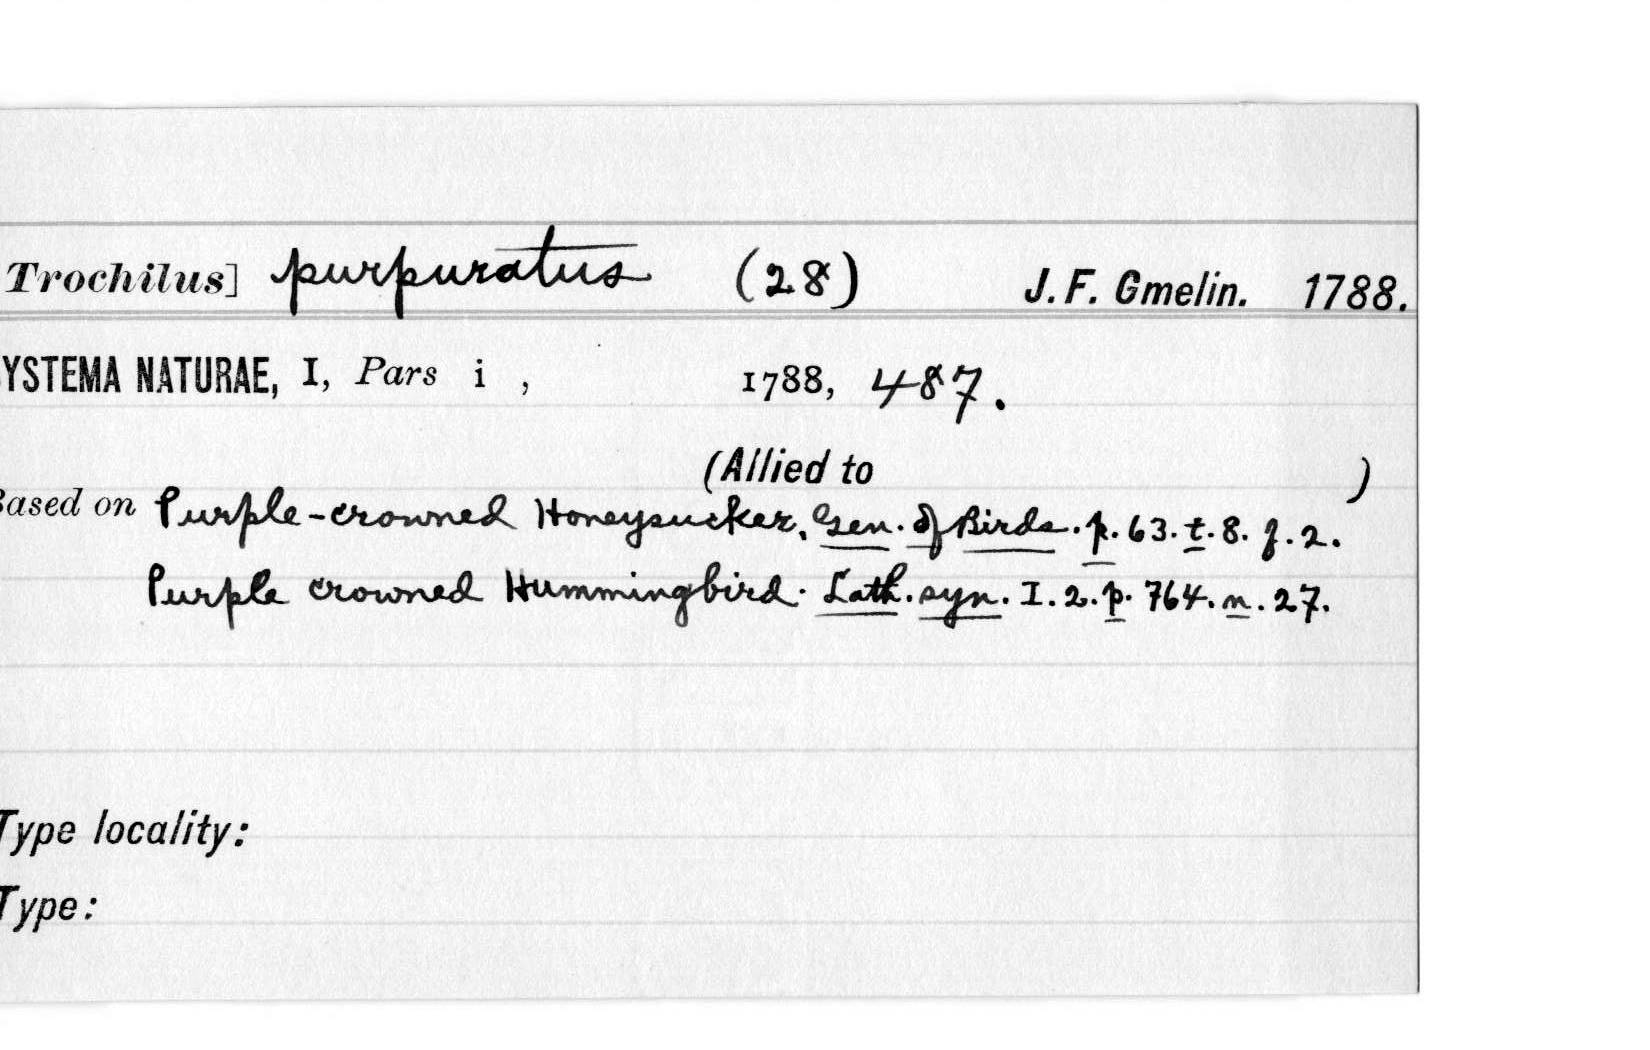 Trochilus] purpuratus (28) J. F. Gmelin. 1788.
YSTEMA NATURAE, I, Pars i , 1788, 487.
(Allied to )
Based on Purple-crowned Honeysucker, Gen. of Birds. p. 63. t. 8. f. 2.
Purple crowned Hummingbird. Lath. syn. I. 2. p. 764. n. 27.
Type locality:
Type: